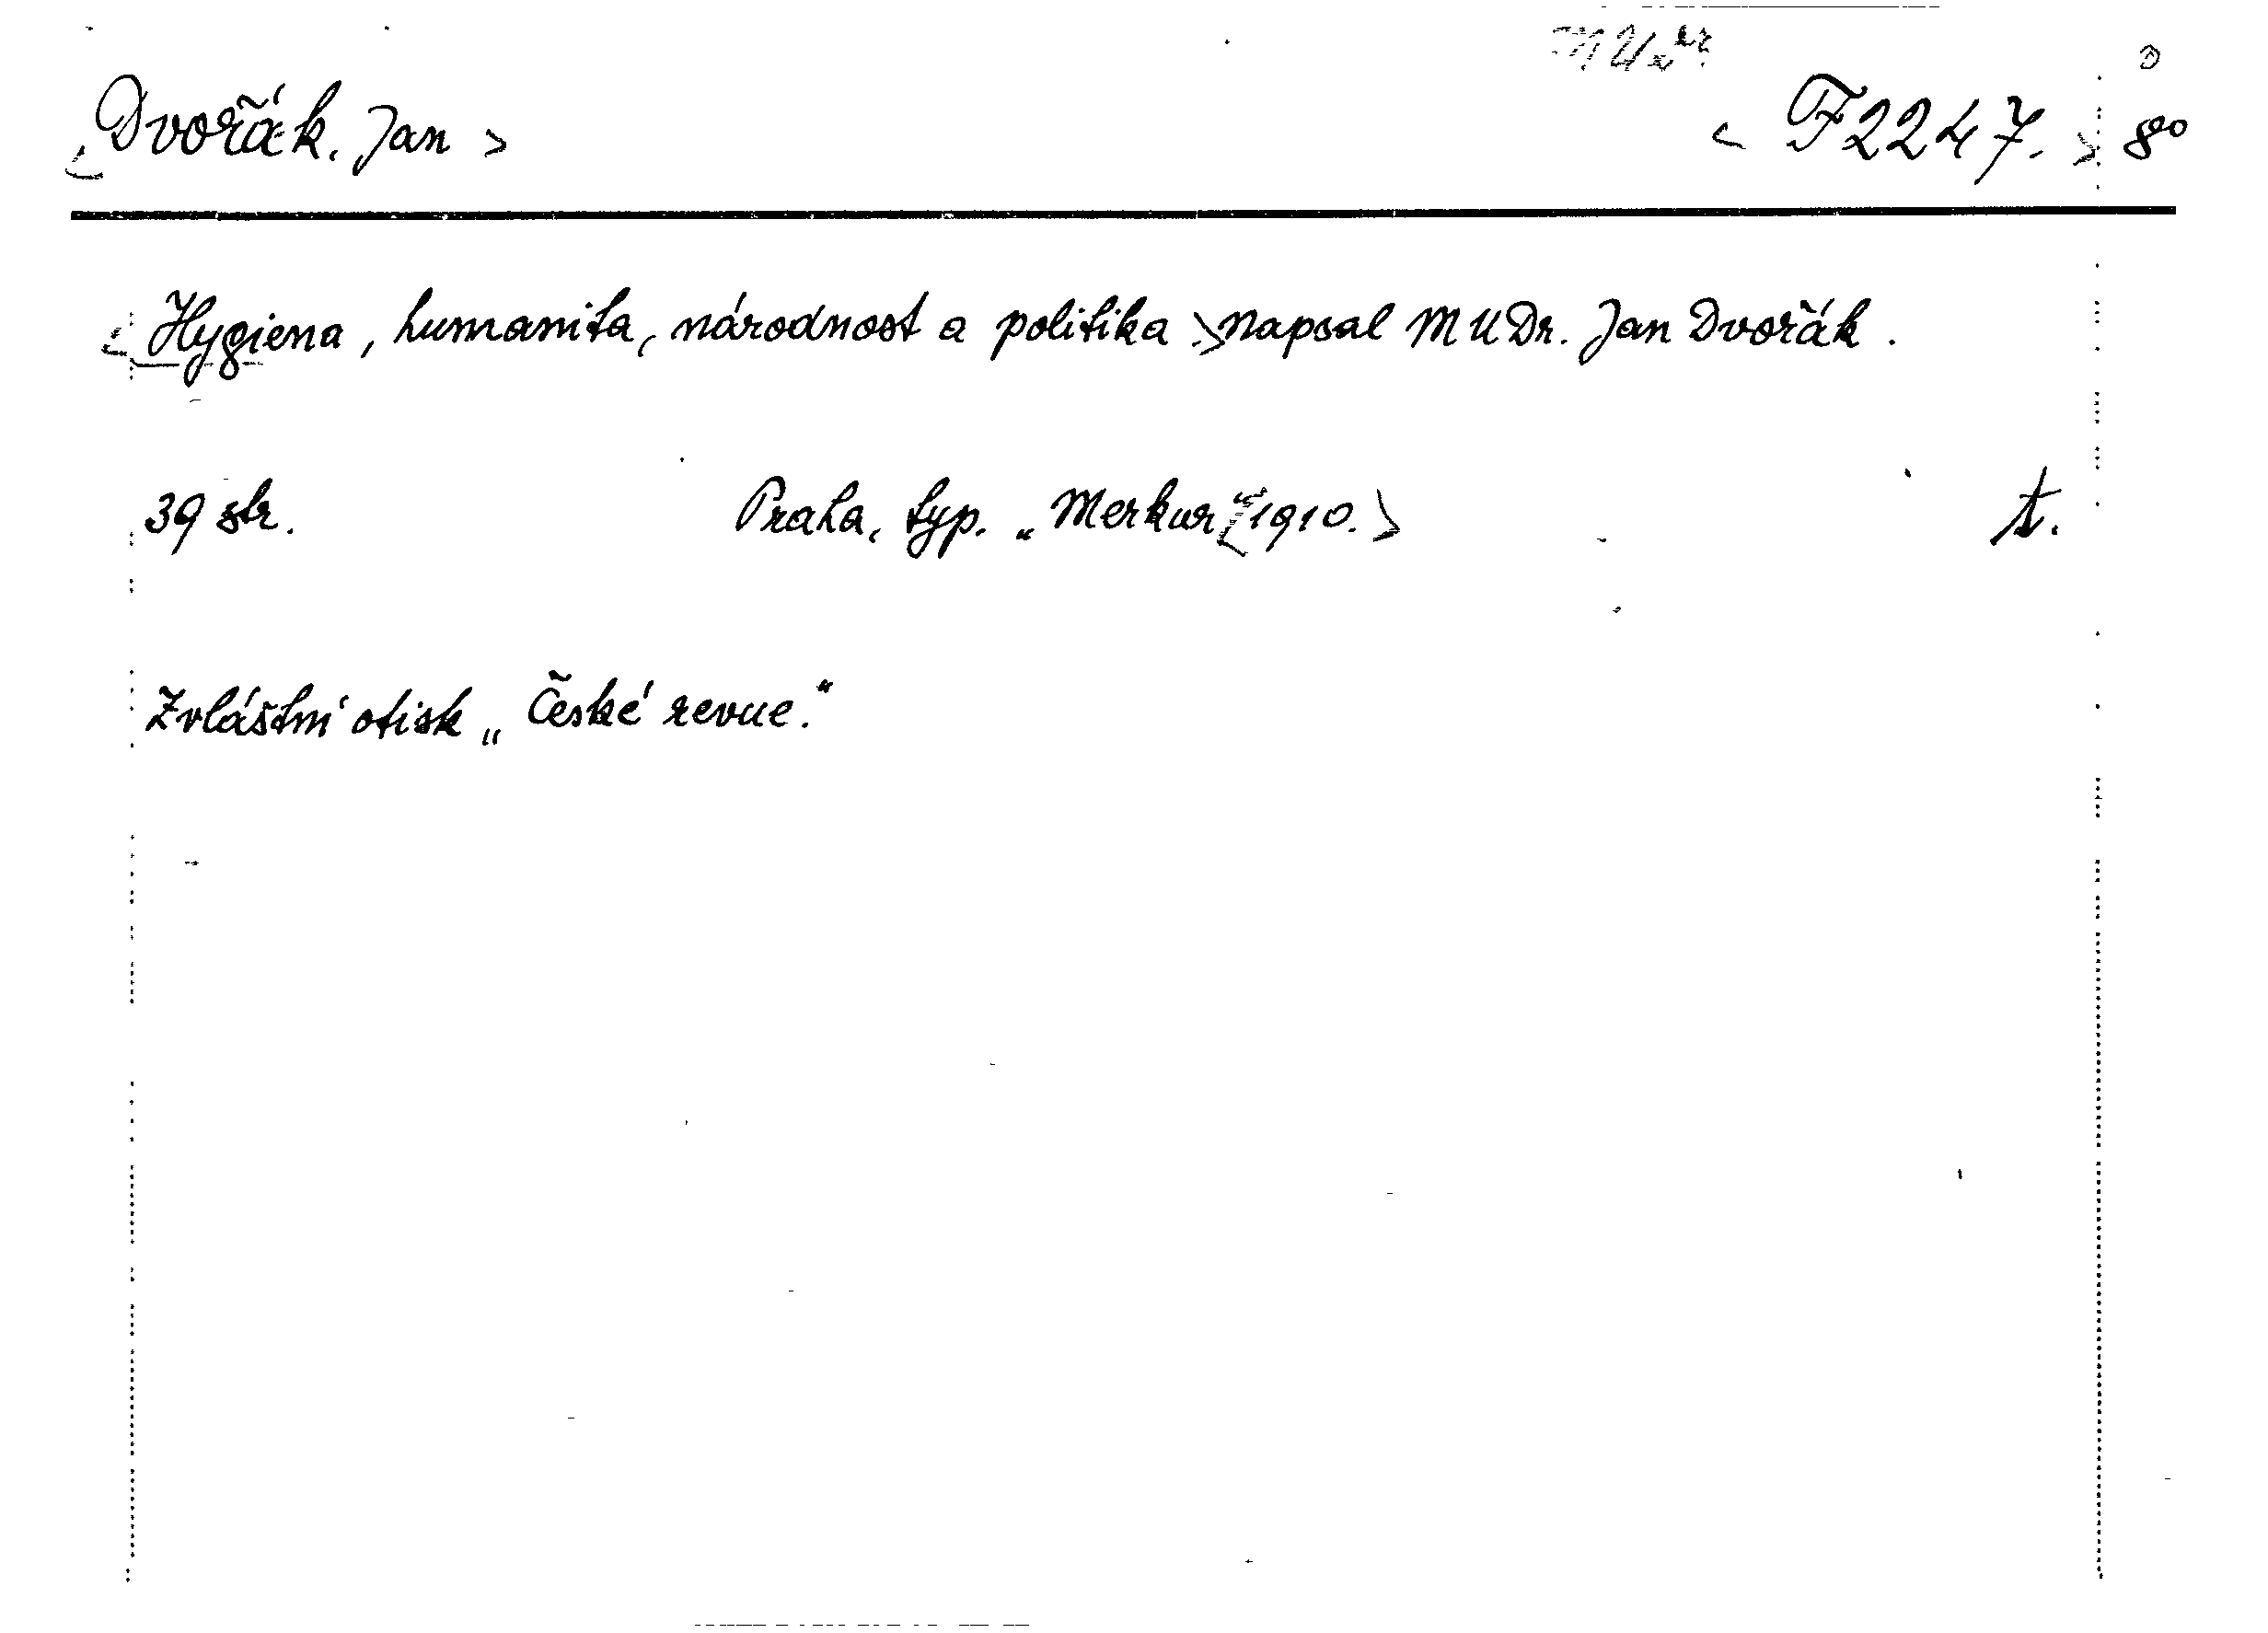 Dvořák, Jan F2247. 8°
Hygiena, humanita, národnost a politika napsal MUDr. Jan Dvořák.
39 str. Praha, typ. „Merkur" 1910. t.
Zvláštní otisk „České revue."